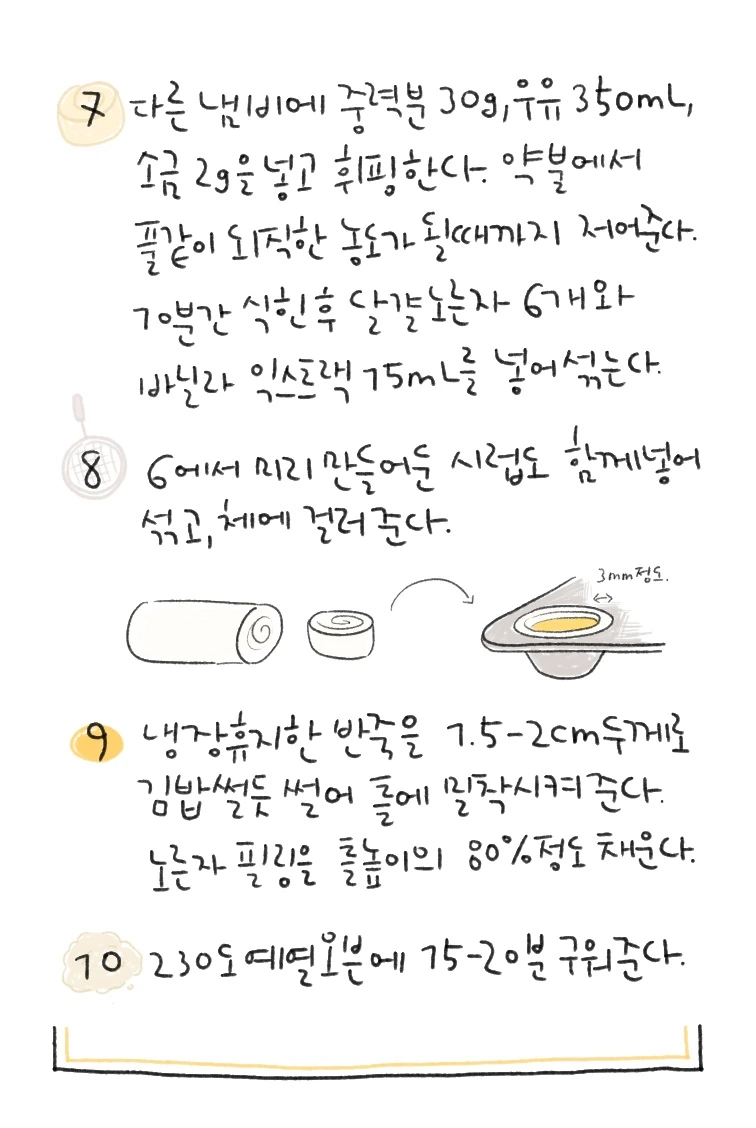 7 다른 냄비에 중력분 30g, 우유 350mL,
소금 2g을 넣고 휘핑한다. 약불에서
풀같이 되직한 농도가 될때까지 저어준다.
10분간 식힌후 달걀노른자 6개와
바닐라 익스트랙 15mL를 넣어 섞는다.
8 6에서 미리 만들어둔 시럽도 함께넣어
섞고, 체에 걸러준다.
3mm정도.
9 냉장휴지한 반죽을 1.5-2cm두께로
김밥썰듯 썰어 틀에 밀착시켜 준다.
노른자 필링을 틀높이의 80%정도 채운다.
10 230도 예열오븐에 15-20분 구워준다.